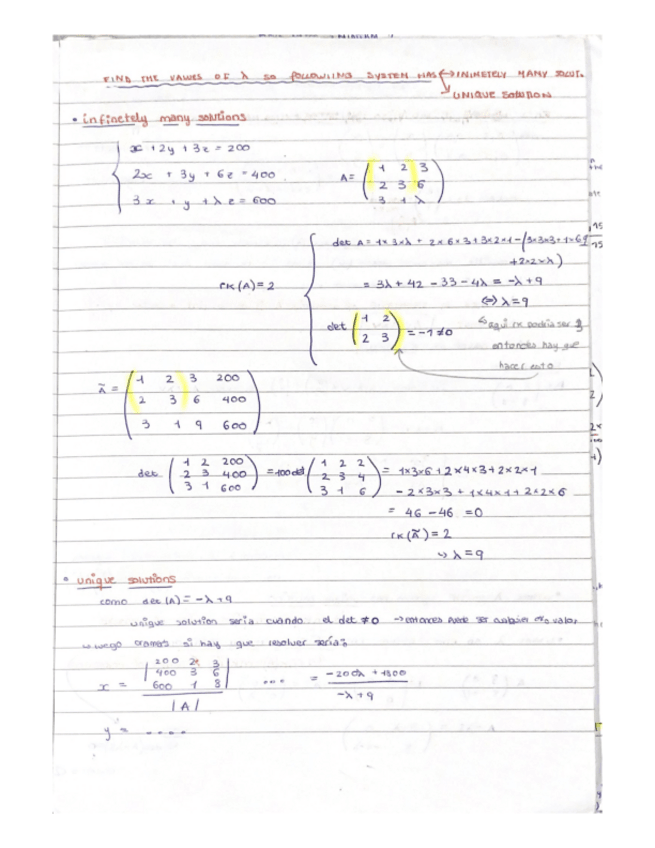 FIND THE VALUES OF λ SO FOLLOWIING SYSTEM HAS ↔ ININETELY MANY SOLUT.
↘ UNIQUE SOLUTION
• infinetely many solutions
x + 2y + 3z = 200
2x + 3y + 6z = 400
3x + y + λz = 600
A = ( 1 2 3
2 3 6
3 1 λ )
rk(A) = 2
det A = 1×3×λ + 2×6×3 + 3×2×1 - (3×3×3 + 1×6
+2×2×λ)
= 3λ + 42 - 33 - 4λ = -λ + 9
⇔ λ = 9
det ( 1 2
2 3 ) = -1 ≠ 0
aqui rk podria ser 3
entonces hay que
hacer esto
Ã = ( 1 2 3 200
2 3 6 400
3 1 9 600 )
det ( 1 2 200
2 3 400
3 1 600 ) = 100 det ( 1 2 2
2 3 4
3 1 6 ) = 1×3×6 + 2×4×3 + 2×2×1
- 2×3×3 + 1×4×1 + 2×2×6
= 46 - 46 = 0
rk(Ã) = 2
↪ λ = 9
• unique solutions
como det (A) = -λ + 9
unique solution seria cuando el det ≠ 0 → entonces puede ser cualquier otro valor,
luego cramer si hay que resolver seria:
x = | 200 2 3
400 3 6
600 1 8 | / |A| .... = -200λ + 1800 / -λ + 9
y = ....